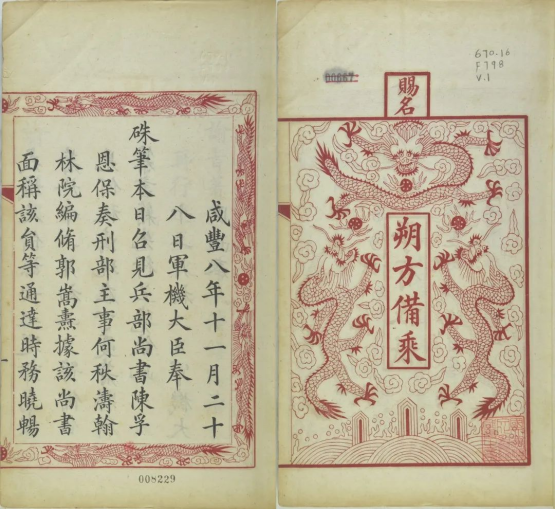 670.16
F798
V.1
賜名
朔方備乘
咸豐八年十一月二十
八日軍機大臣奉
硃筆本日召見兵部尚書陳孚
恩保奏刑部主事何秋濤翰
林院編脩郭嵩燾據該尚書
面稱該貟等通達時務曉暢
008229